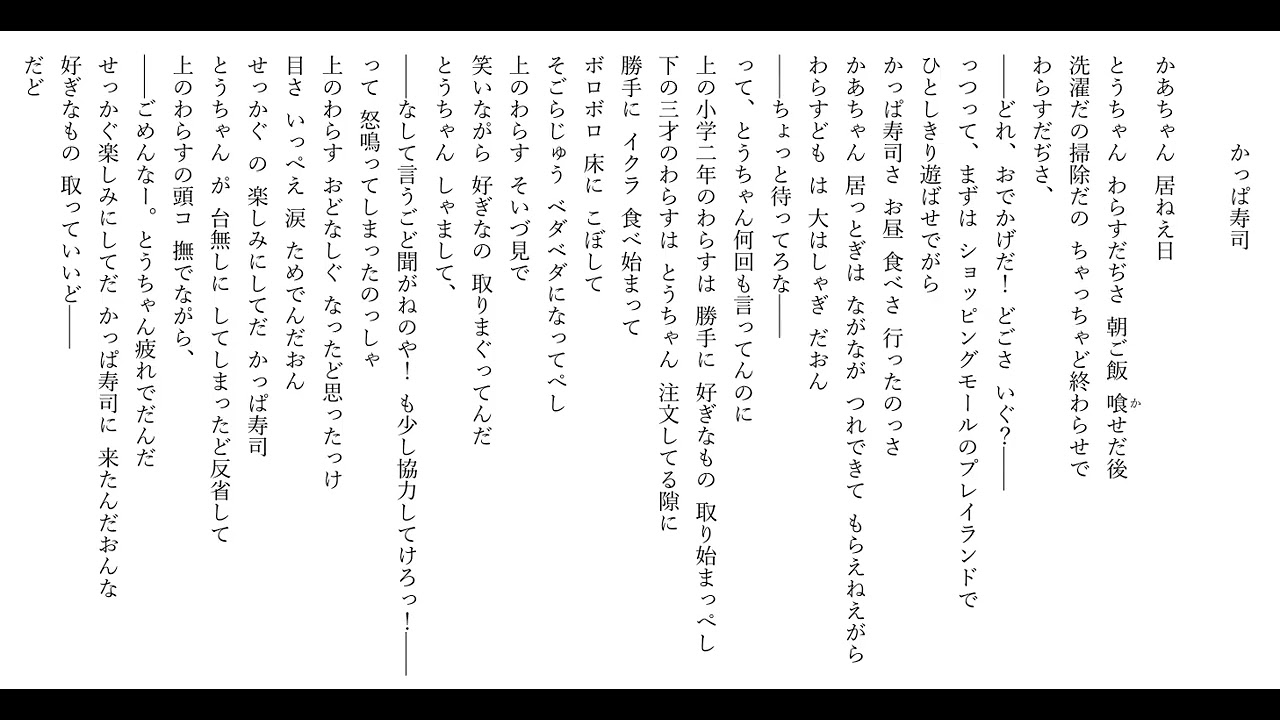 かっぱ寿司
かあちゃん 居ねえ日
とうちゃん わらすだぢさ 朝ご飯 喰せだ後
か
洗濯だの掃除だの ちゃっちゃど終わらせで
わらすだぢさ、
――どれ、おでかげだ！ どごさ いぐ？――
っつって、まずは ショッピングモールのプレイランドで
ひとしきり遊ばせでがら
かっぱ寿司さ お昼 食べさ 行ったのっさ
かあちゃん 居っとぎは ながなが つれできて もらえねえがら
わらすども は 大はしゃぎ だおん
――ちょっと待ってろな――
って、とうちゃん何回も言ってんのに
上の小学二年のわらすは 勝手に 好ぎなもの 取り始まっぺし
下の三才のわらすは とうちゃん 注文してる隙に
勝手に イクラ 食べ始まって
ボロボロ 床に こぼして
そごらじゅう ベダベダになってぺし
上のわらす そいづ見で
笑いながら 好ぎなの 取りまぐってんだ
とうちゃん しゃまして、
――なして言うごど聞がねのや！ も少し協力してけろっ！――
って 怒鳴ってしまったのっしゃ
上のわらす おどなしぐ なったど思ったっけ
目さ いっぺえ 涙 ためでんだおん
せっかぐ の 楽しみにしてだ かっぱ寿司
とうちゃん が 台無しに してしまったど反省して
上のわらすの頭コ 撫でながら、
――ごめんなー。とうちゃん疲れでだんだ
せっかぐ楽しみにしてだ かっぱ寿司に 来たんだおんな
好ぎなもの 取っていいど――
だど